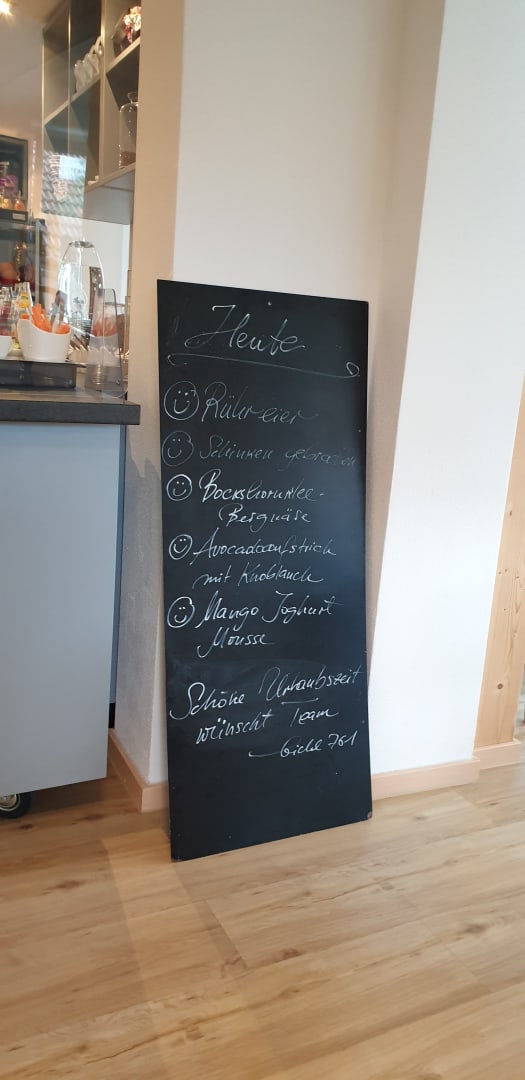 Heute
Rühreier
Schinken gebraten
Bockshornklee-
Bergkäse
Avocadoaufstrich
mit Knoblauch
Mango Joghurt
Mousse
Schöne Urlaubszeit
wünscht Team
761